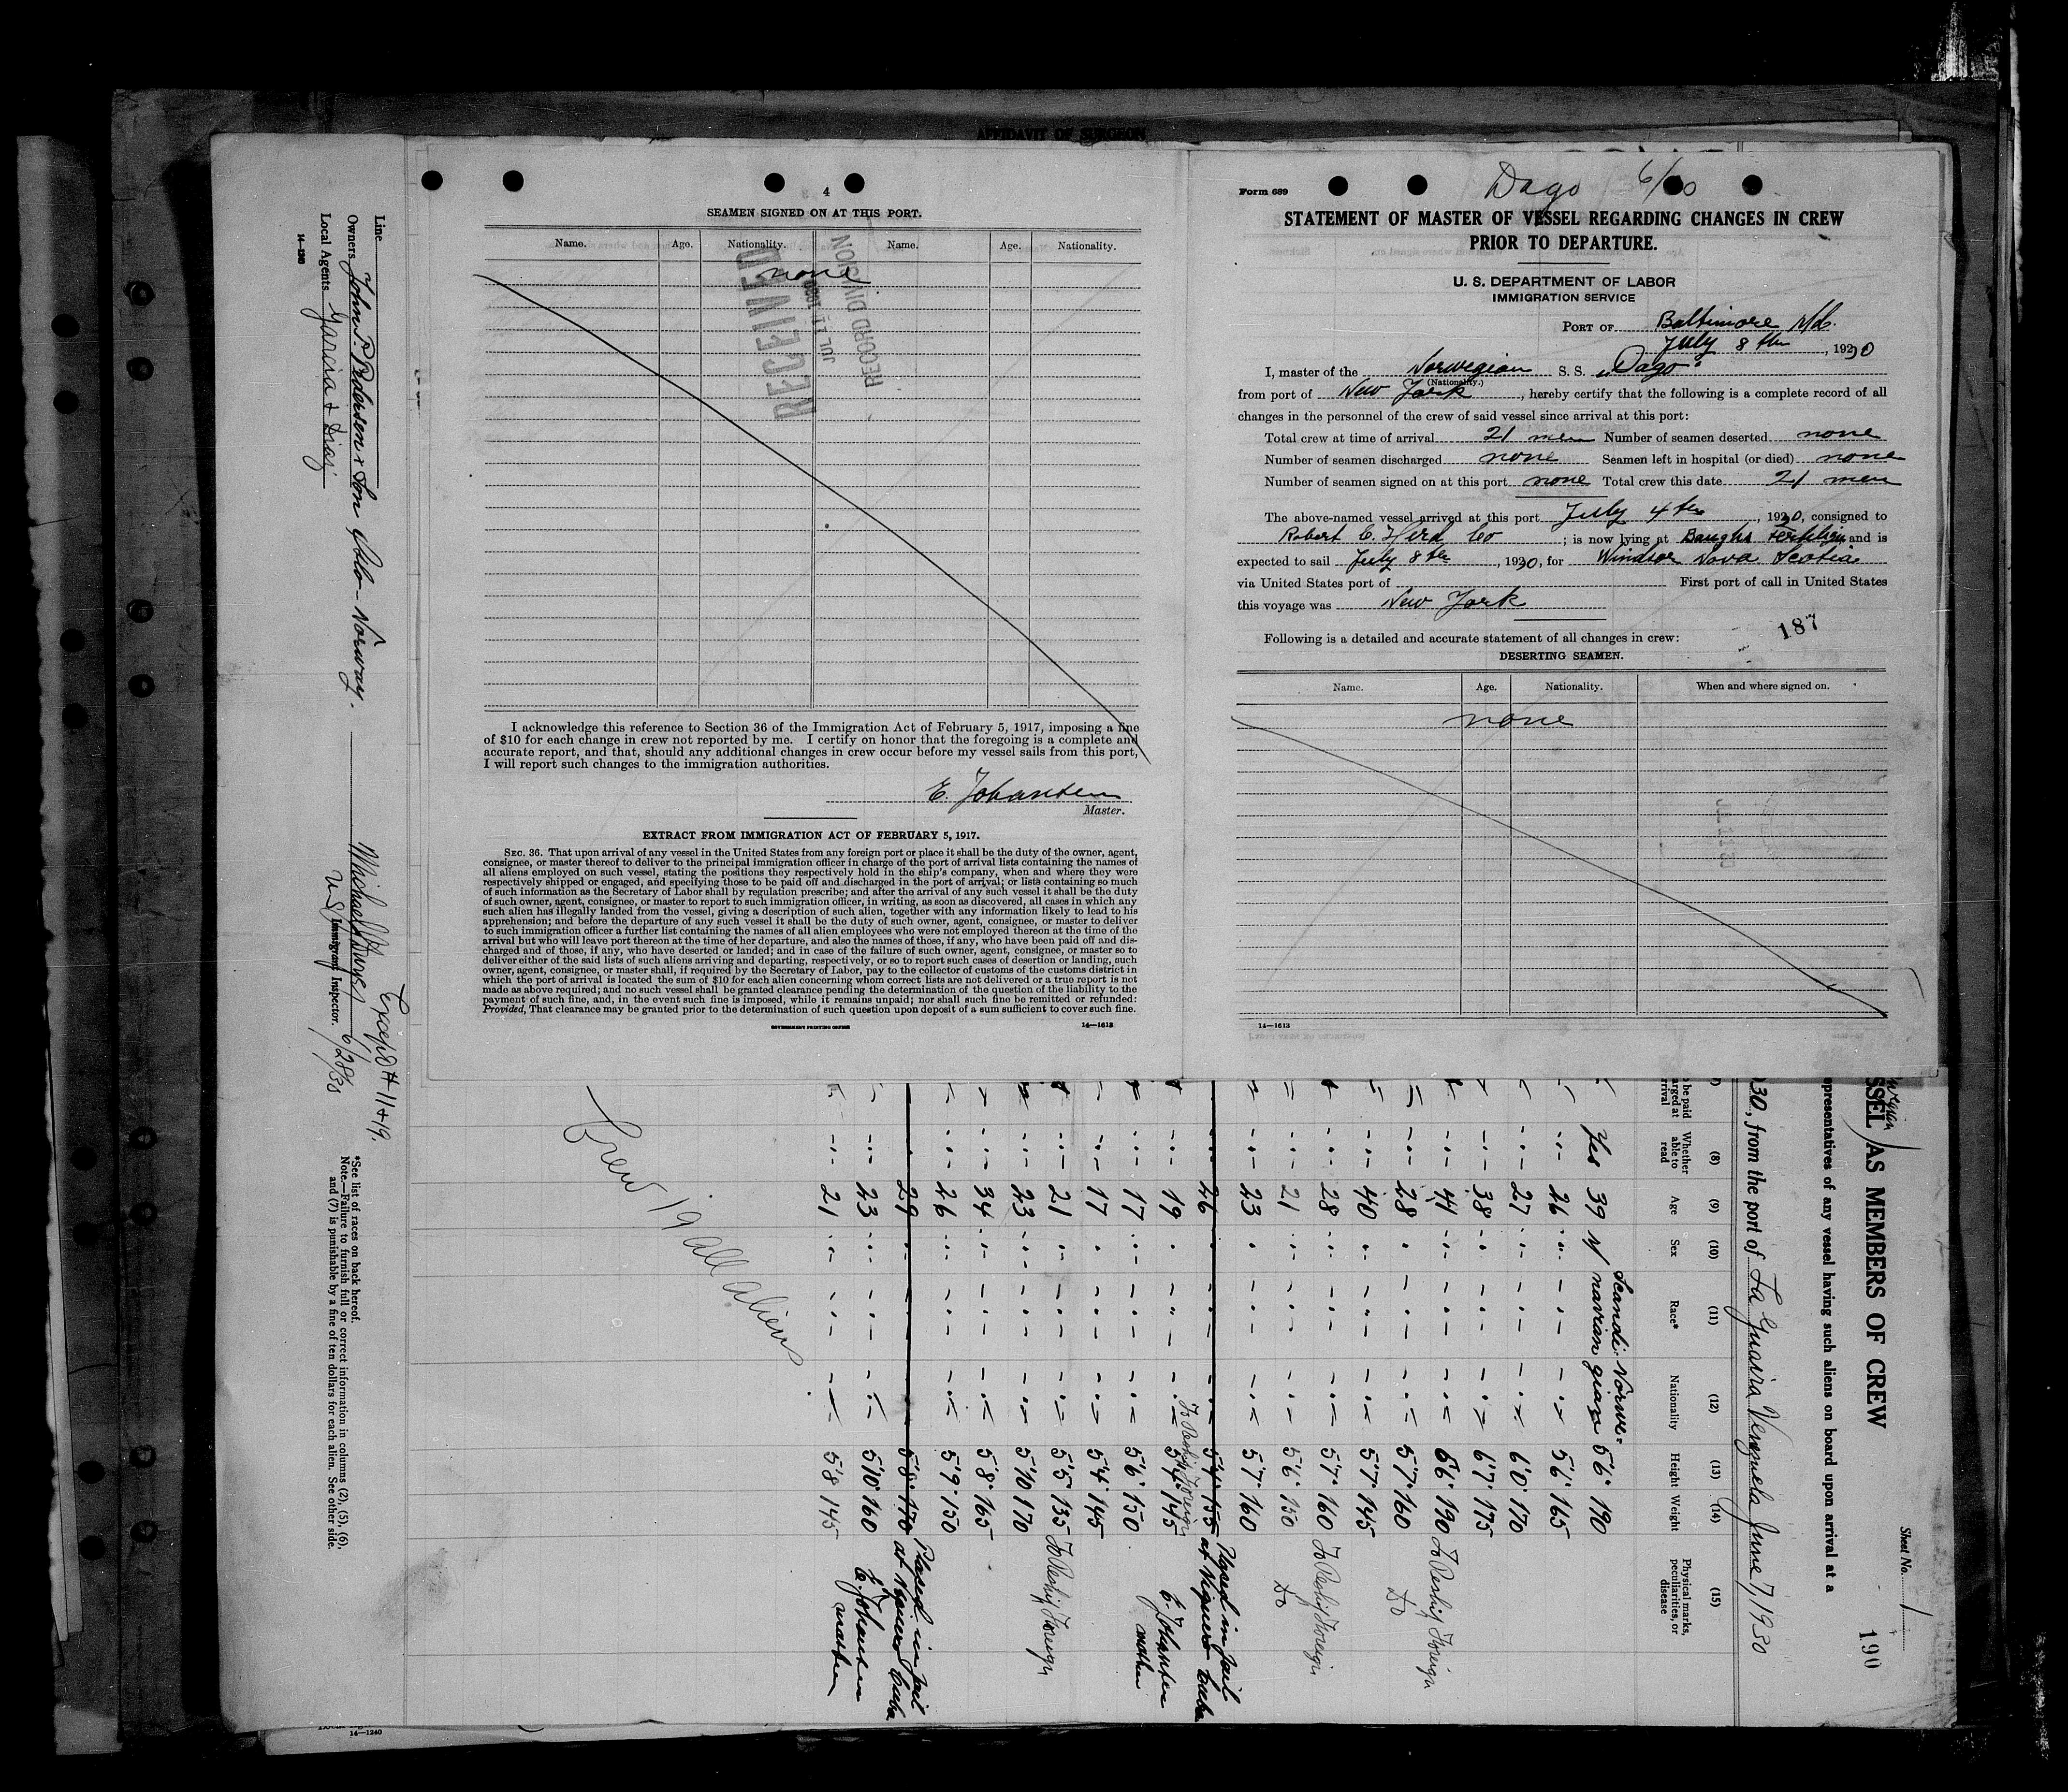 AFFIDAVIT OF SURGEON
4
SEAMEN SIGNED ON AT THIS PORT.
Name. Age. Nationality. Name. Age. Nationality.
none
RECEIVED
JUL 11 1930
RECORD DIVISION
I acknowledge this reference to Section 36 of the Immigration Act of February 5, 1917, imposing a fine
of $10 for each change in crew not reported by me. I certify on honor that the foregoing is a complete and
accurate report, and that, should any additional changes in crew occur before my vessel sails from this port,
I will report such changes to the immigration authorities.
E. Johansen
Master.
EXTRACT FROM IMMIGRATION ACT OF FEBRUARY 5, 1917.
SEC. 36. That upon arrival of any vessel in the United States from any foreign port or place it shall be the duty of the owner, agent,
consignee, or master thereof to deliver to the principal immigration officer in charge of the port of arrival lists containing the names of
all aliens employed on such vessel, stating the positions they respectively hold in the ship's company, when and where they were
respectively shipped or engaged, and specifying those to be paid off and discharged in the port of arrival; or lists containing so much
of such information as the Secretary of Labor shall by regulation prescribe; and after the arrival of any such vessel it shall be the duty
of such owner, agent, consignee, or master to report to such immigration officer, in writing, as soon as discovered, all cases in which any
such alien has illegally landed from the vessel, giving a description of such alien, together with any information likely to lead to his
apprehension; and before the departure of any such vessel it shall be the duty of such owner, agent, consignee, or master to deliver
to such immigration officer a further list containing the names of all alien employees who were not employed thereon at the time of the
arrival but who will leave port thereon at the time of her departure, and also the names of those, if any, who have been paid off and dis-
charged and of those, if any, who have deserted or landed; and in case of the failure of such owner, agent, consignee, or master so to
deliver either of the said lists of such aliens arriving and departing, respectively, or so to report such cases of desertion or landing, such
owner, agent, consignee, or master shall, if required by the Secretary of Labor, pay to the collector of customs of the customs district in
which the port of arrival is located the sum of $10 for each alien concerning whom correct lists are not delivered or a true report is not
made as above required; and no such vessel shall be granted clearance pending the determination of the question of the liability to the
payment of such fine, and, in the event such fine is imposed, while it remains unpaid; nor shall such fine be remitted or refunded:
Provided, That clearance may be granted prior to the determination of such question upon deposit of a sum sufficient to cover such fine.
GOVERNMENT PRINTING OFFICE 14—1613
Form 689
Dago
STATEMENT OF MASTER OF VESSEL REGARDING CHANGES IN CREW
PRIOR TO DEPARTURE.
U. S. DEPARTMENT OF LABOR
IMMIGRATION SERVICE
PORT OF Baltimore Md.
July 8th, 1930
I, master of the Norwegian S. S. "Dago"
(Nationality.)
from port of New York, hereby certify that the following is a complete record of all
changes in the personnel of the crew of said vessel since arrival at this port:
Total crew at time of arrival 21 men Number of seamen deserted none
Number of seamen discharged none Seamen left in hospital (or died) none
Number of seamen signed on at this port none Total crew this date 21 men
The above-named vessel arrived at this port July 4th, 1930, consigned to
Robert C. Herd Co; is now lying at Baughs and is
expected to sail July 8th, 1930, for Windsor Nova Scotia
via United States port of First port of call in United States
this voyage was New York
187
Following is a detailed and accurate statement of all changes in crew:
DESERTING SEAMEN.
Name. Age. Nationality. When and where signed on.
none
14—1613
Line
Owners John P. Pedersen & Son Oslo - Norway.
Local Agents Garcia & Diaz
14—1240
Except # 11 + 19.
U.S. Immigrant Inspector. 6/28/30
*See list of races on back hereof.
Note.—Failure to furnish full or correct information in columns (2), (5), (6),
and (7) is punishable by a fine of ten dollars for each alien. See other side.
Sheet No. 1
190
SSEL AS MEMBERS OF CREW
epresentatives of any vessel having such aliens on board upon arrival at a
30, from the port of La Guaira Venezuela June 7/1930
(8) (9) (10) (11) (12) (13) (14) (15)
Whether able to read Age Sex Race* Nationality Height Weight Physical marks, peculiarities, or disease
Yes 39 M Scandinavian Norwegian 5'6" 190
26 5'6" 165
27 6'0" 170
38 6'7" 175
41 6'6" 190 To Reship Foreign
28 5'7" 160 Do
40 5'7" 145
28 5'7" 160 To Reship Foreign
21 5'6" 150 Do
23 5'7" 160
26 5'4" 155 Placed in jail at Cuba
19 5'4" 145 To Reship Foreign E. Johansen master
17 5'6" 150
17 5'4" 145
21 5'5" 135 To Reship Foreign
23 5'10 170
34 5'8" 165
26 5'9" 150
29 5'8" 170 Placed in jail at Cuba
23 5'10" 160 E. Johansen master
21 5'8 145
Crew 19 all aliens
14—1240